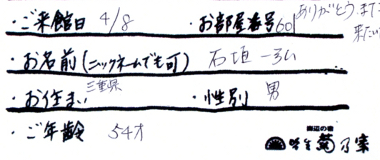 ・ご来館日 4/8 ・お部屋番号 601 ありがとう、また来たい
・お名前(ニックネームでも可) 石垣 一弘
・お住まい 三重県 ・性別 男
・ご年齢 54才
海辺の宿